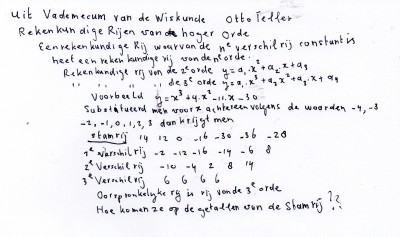 Uit Vademecum van de Wiskunde Otto Teller
Rekenkundige Rijen van hoger Orde
Een rekenkundige Rij waarvan de nᵉ verschilrij constant is
heet een rekenkundige rij van de nᵉ orde.
Rekenkundige rij van de 2ᵉ orde y = a₁x² + a₂x + a₃
" " " " de 3ᵉ orde y = a₁x³ + a₂x² + a₃x + a₄
Voorbeeld y = x³ + 4x² - 11x - 30
Substitueerd men voor x achtereenvolgens de waarden -4, -3
-2, -1, 0, 1, 2, 3 dan krijgt men
stamrij 14 12 0 -16 -30 -36 -28
1ᵉ Verschilrij -2 -12 -16 -14 -6 8
2ᵉ Verschilrij -10 -4 2 8 14
3ᵉ Verschilrij 6 6 6 6
Oorspronkelijke rij is rij van de 3ᵉ orde
Hoe komen ze op de getallen van de Stamrij ??